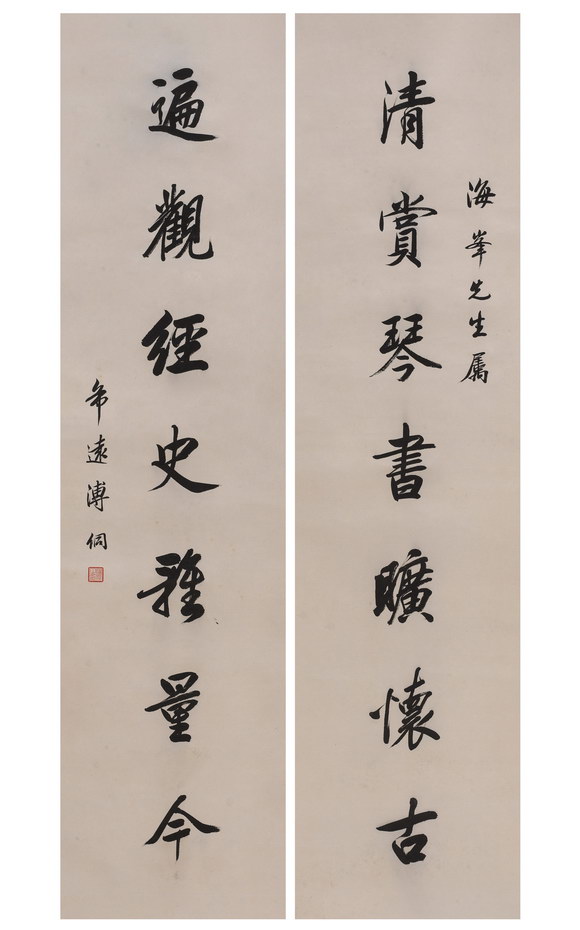 海峯先生属
清賞琴書曠懷古
遍觀經史雅量今
希遠溥侗